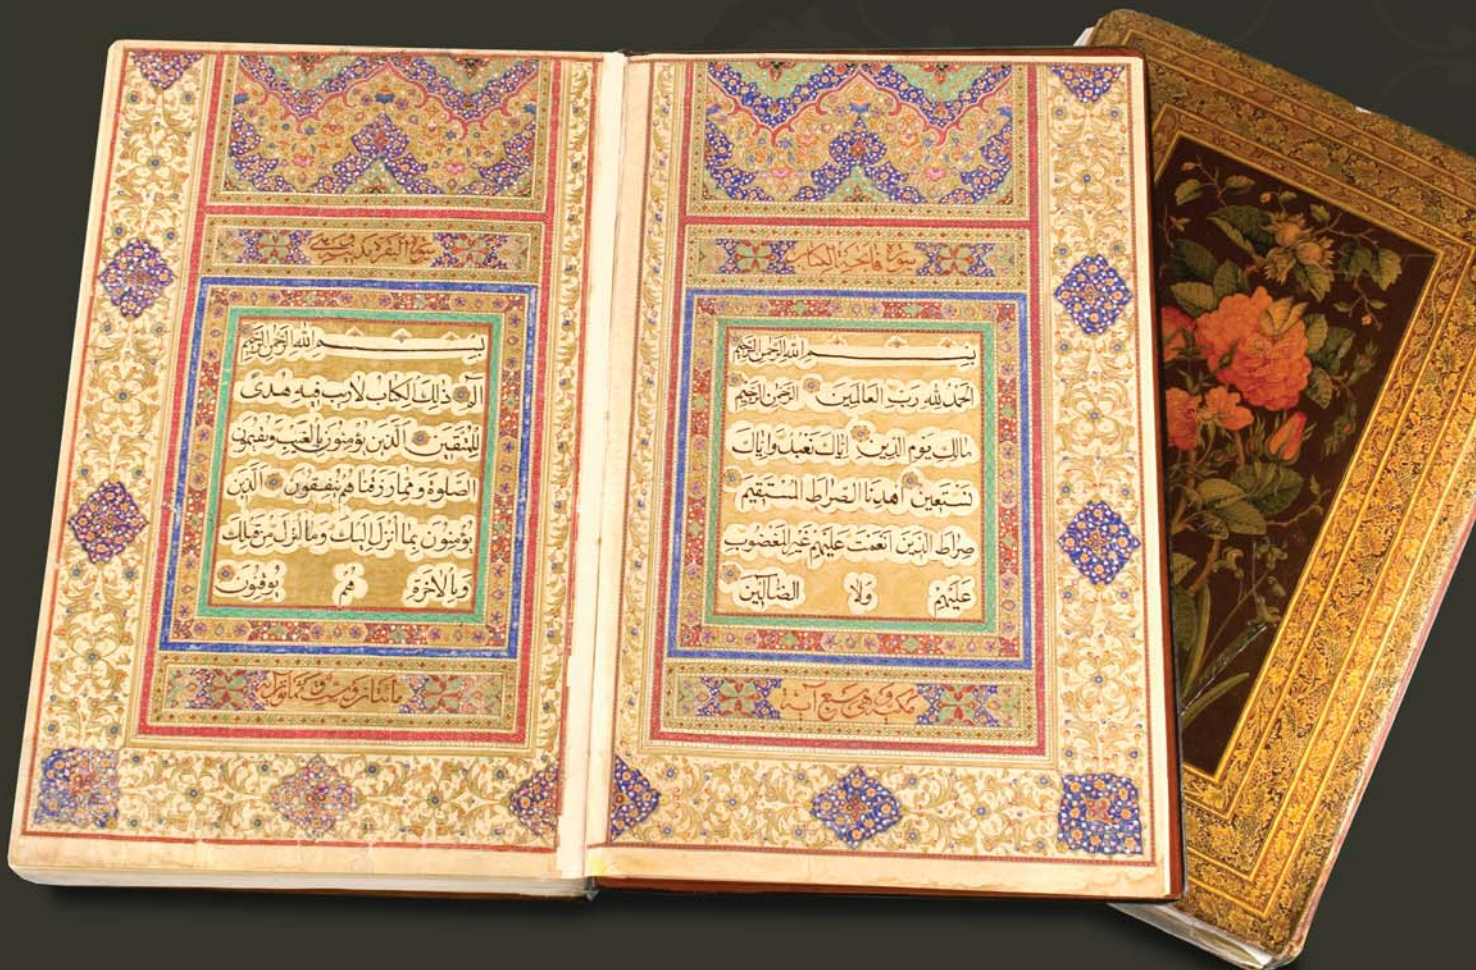 سورة فاتحة الكتاب
بسم الله الرحمن الرحيم
الحمد لله رب العالمين الرحمن الرحيم
مالك يوم الدين إياك نعبد وإياك
نستعين اهدنا الصراط المستقيم
صراط الذين أنعمت عليهم غير المغضوب
عليهم ولا الضالين
مكية وهي سبع آية
سورة البقرة
بسم الله الرحمن الرحيم
الم ذلك الكتاب لا ريب فيه هدى
للمتقين الذين يؤمنون بالغيب ويقيمون
الصلوة ومما رزقناهم ينفقون والذين
يؤمنون بما أنزل إليك وما أنزل من قبلك
وبالآخرة هم يوقنون
مائتان وست